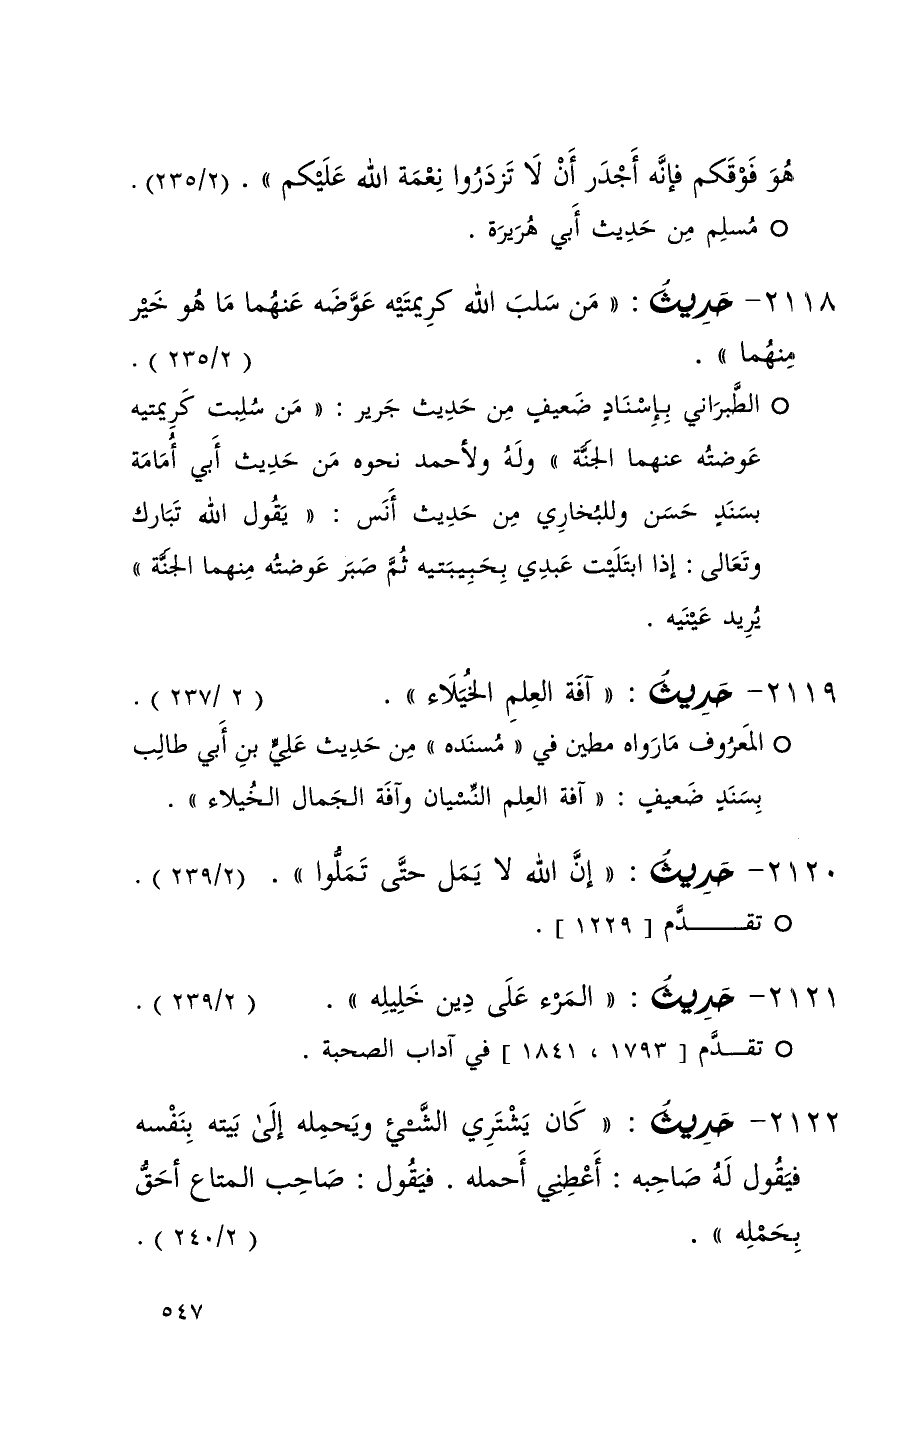 هُوَ فَوْقَكم فإنَّه أَجْدَر أَنْ لَا تَزدَرُوا نِعْمَة الله عَلَيْكم » . (٢٣٥/٢) .
○ مُسلِم مِن حَدِيث أَبي هُرَيرَة .
٢١١٨- حَدِيثُ : « مَن سَلبَ الله كرِيمتَيْه عَوَّضَه عَنهُما مَا هُو خَيْر
مِنهُما » . ( ٢٣٥/٢ ) .
○ الطَّبرَاني بِإسْنَادٍ ضَعيفٍ مِن حَدِيث جَرير : « مَن سُلِبت كَرِيمتيه
عَوضتُه عنهما الجنَّة » ولَهُ ولأحمد نحوه مَن حَدِيث أَبي أُمَامَة
بسَنَدٍ حَسَن وللبُخارِي مِن حَدِيث أَنَس : « يَقُول الله تَبَارك
وتَعَالى : إذا ابتَلَيْت عَبدِي بِحَبِيبَتيه ثُمَّ صَبَر عَوضتُه مِنهما الجنَّة »
يُرِيد عَيْنَيه .
٢١١٩- حَدِيثُ : « آفَة العِلمِ الخُيَلَاء » . ( ٢ /٢٣٧ ) .
○ المَعرُوف مَارَواه مطين في « مُسنَده » مِن حَدِيث عَلِيٍّ بنِ أَبي طالِب
بِسَنَدٍ ضَعيفٍ : « آفة العِلم النِّسْيان وآفَة الجَمال الخُيلاء » .
٢١٢٠- حَدِيثُ : « إنَّ الله لا يَمَل حتَّى تَمَلُّوا » . (٢٣٩/٢ ) .
○ تقـــــدَّم [ ١٢٢٩ ] .
٢١٢١- حَدِيثُ : « المَرْء عَلَى دِين خَلِيلِه » . ( ٢٣٩/٢ ) .
○ تقــدَّم [ ١٧٩٣ ، ١٨٤١ ] في آداب الصحبة .
٢١٢٢- حَدِيثُ : « كَان يَشْتَرِي الشَّيْئ ويَحمِله إلَىٰ بَيته بِنَفْسه
فيَقُول لَهُ صَاحِبه : أَعْطِنِي أَحمله . فيَقُول : صَاحِب المتاع أحَقُّ
بِحَمْلِه » . ( ٢٤٠/٢ ) .
٥٤٧